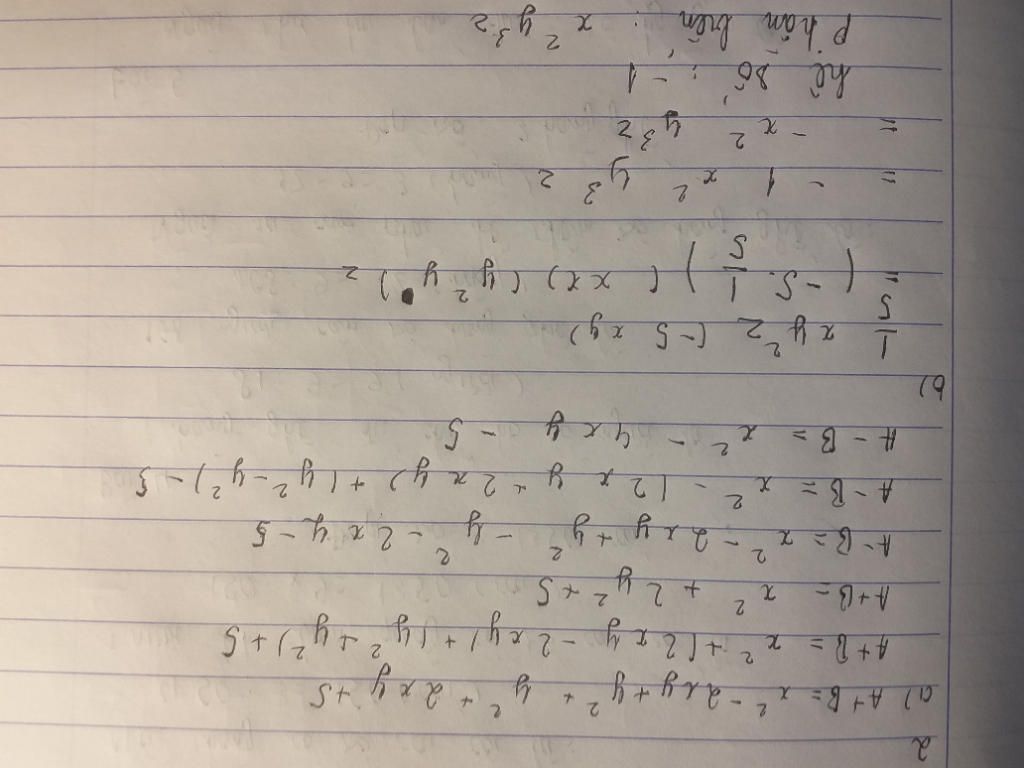 2
a) A+B = x² - 2xy + y² + y² + 2xy + 5
A+B = x² + (2xy - 2xy) + (y² + y²) + 5
A+B = x² + 2y² + 5
A-B = x² - 2xy + y² - y² - 2xy - 5
A-B = x² - (2xy + 2xy) + (y² - y²) - 5
A-B = x² - 4xy - 5
b)
1/5 xy²z (-5xy)
= (-5 · 1/5) (xx) (y²y) z
= -1 x² y³ z
= -x² y³ z
hệ số : -1
Phần biến : x² y³ z